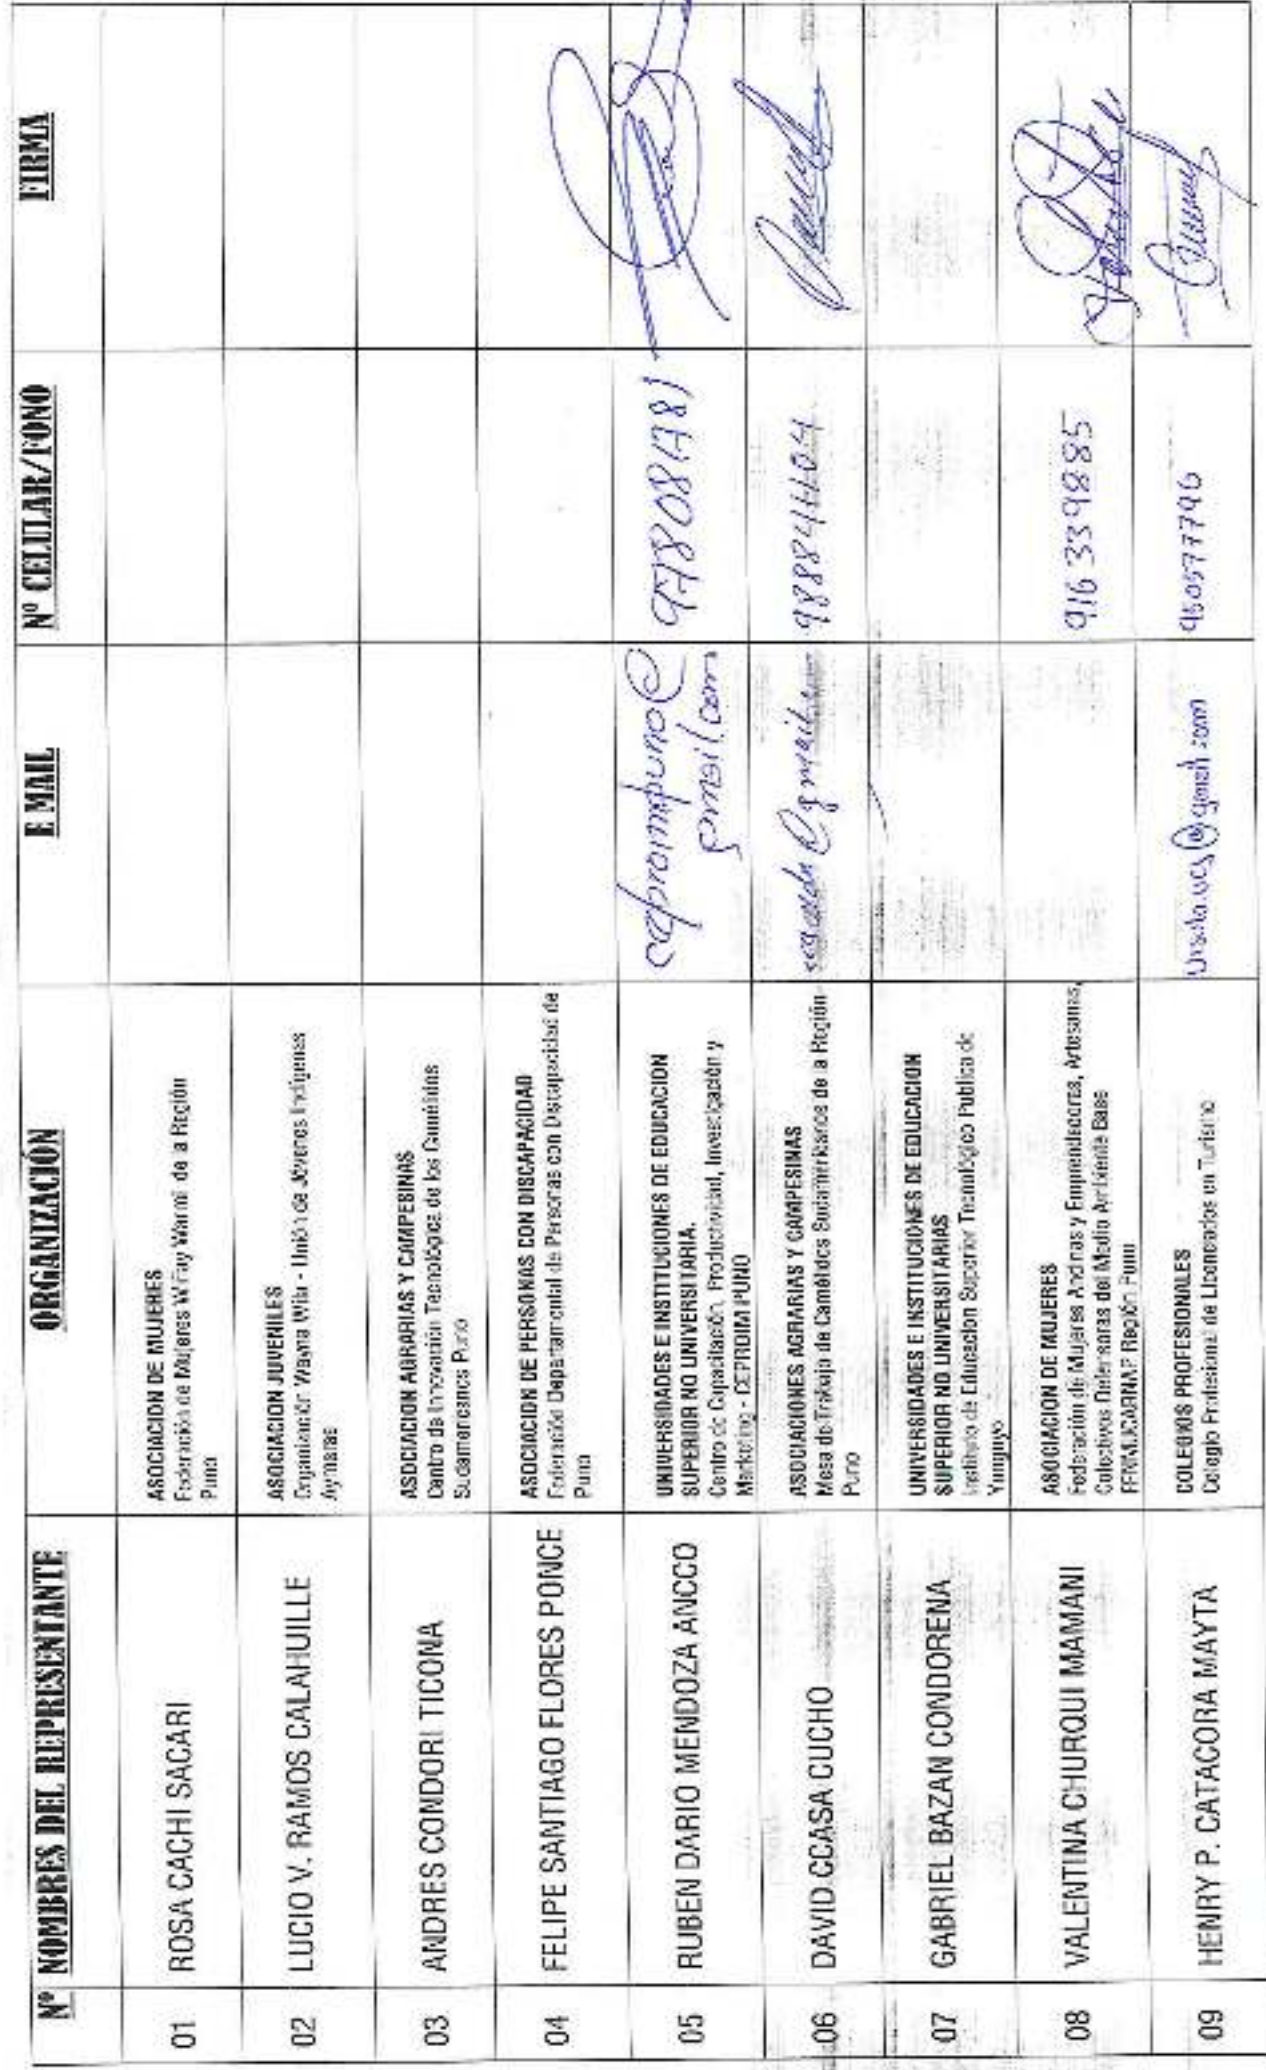 Nº NOMBRES DEL REPRESENTANTE ORGANIZACIÓN E MAIL Nº CELULAR/FONO FIRMA
01 ROSA CACHI SACARI
ASOCIACION DE MUJERES
Federación de Mujeres Wiñay Warmi de la Región
Puno
02 LUCIO V. RAMOS CALAHUILLE
ASOCIACION JUVENILES
Organización Wayna Wila - Unión de Jóvenes Indígenas
Aymaras
03 ANDRES CONDORI TICONA
ASOCIACION AGRARIAS Y CAMPESINAS
Centro de Innovación Tecnológica de los Camélidos
Sudamericanos Puno
04 FELIPE SANTIAGO FLORES PONCE
ASOCIACION DE PERSONAS CON DISCAPACIDAD
Federación Departamental de Personas con Discapacidad de
Puno
05 RUBEN DARIO MENDOZA ANCCO
UNIVERSIDADES E INSTITUCIONES DE EDUCACION
SUPERIOR NO UNIVERSITARIA.
Centro de Capacitación, Productividad, Investigación y
Marketing - CEPROIM PUNO
gmail.com
978081781
06 DAVID CCASA CUCHO
ASOCIACIONES AGRARIAS Y CAMPESINAS
Mesa de Trabajo de Camélidos Sudamericanos de la Región
Puno
07 GABRIEL BAZAN CONDORENA
UNIVERSIDADES E INSTITUCIONES DE EDUCACION
SUPERIOR NO UNIVERSITARIAS
Instituto de Educacion Superior Tecnológico Publica de
Yunguyo
08 VALENTINA CHURQUI MAMANI
ASOCIACION DE MUJERES
Federación de Mujeres Andinas y Emprendedoras, Artesanas,
Colectivos Defensoras del Medio Ambiente Base
Región Puno
916 339885
09 HENRY P. CATACORA MAYTA
COLEGIOS PROFESIONALES
Colegio Profesional de Licenciados en Turismo
950577796